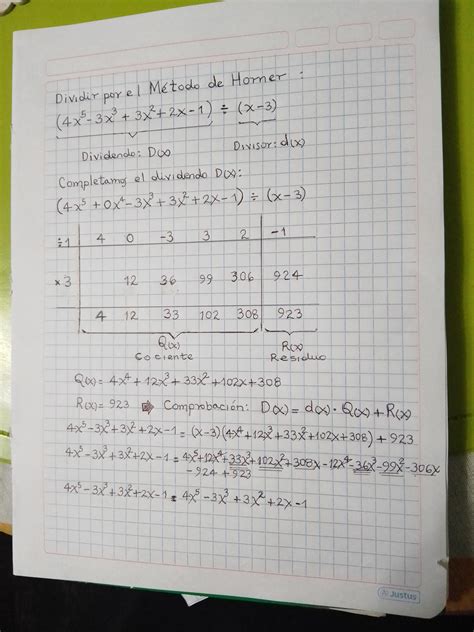 Dividir por el Método de Horner :
(4x⁵-3x³+3x²+2x-1) ÷ (x-3)
Dividendo: D(x) Divisor: d(x)
Completamos el dividendo D(x):
(4x⁵+0x⁴-3x³+3x²+2x-1) ÷ (x-3)
÷1 4 0 -3 3 2 -1
×3 12 36 99 306 924
4 12 33 102 308 923
Q(x) R(x)
Cociente Residuo
Q(x)= 4x⁴+12x³+33x²+102x+308
R(x)= 923 ⇒ Comprobación: D(x)= d(x)· Q(x)+R(x)
4x⁵-3x³+3x²+2x-1=(x-3)(4x⁴+12x³+33x²+102x+308)+923
4x⁵-3x³+3x²+2x-1=4x⁵+12x⁴+33x³+102x²+308x-12x⁴-36x³-99x²-306x
-924+923
4x⁵-3x³+3x²+2x-1=4x⁵-3x³+3x²+2x-1
Justus